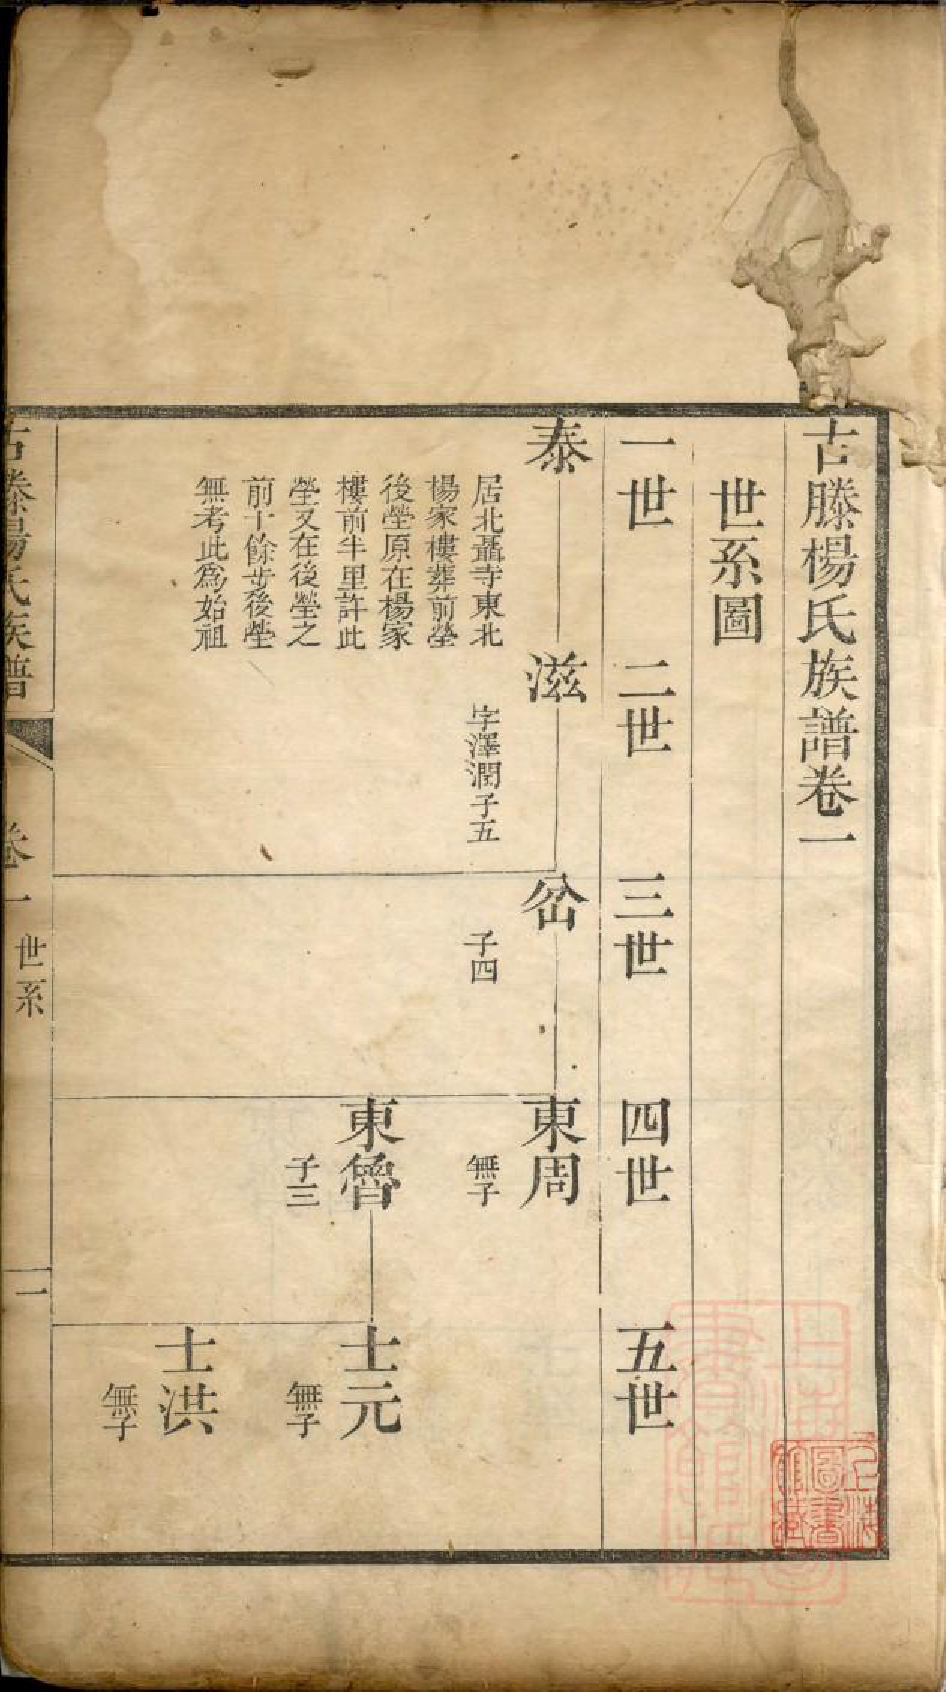 古滕楊氏族譜卷一
世系圖
一世
二世
三世
四世
五世
泰
居北聶寺東北
楊家樓葬前塋
後塋原在楊家
樓前半里許此
塋又在後塋之
前十餘步後塋
無考此為始祖
滋
字澤潤子五
峃
子四
東周
無子
東魯
子三
士元
無子
士洪
無子
古滕楊氏族譜
卷一
世系
一
上海圖書館藏